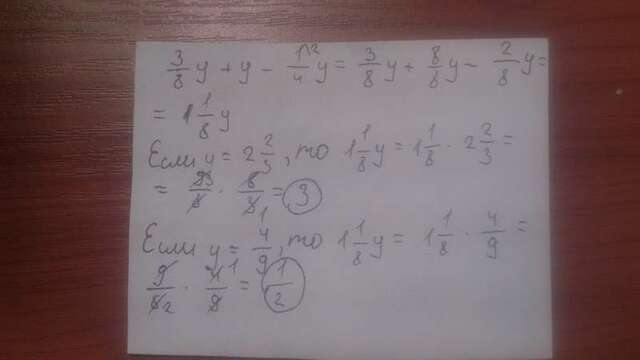 3/8 y + y - 1²/4 y = 3/8 y + 8/8 y - 2/8 y =
= 1 1/8 y
Если y = 2 2/3, то 1 1/8 y = 1 1/8 · 2 2/3 =
= 9/8 · 8/3 = 3
Если y = 4/9, то 1 1/8 y = 1 1/8 · 4/9 =
9/8 2 · 4 1/9 = 1/2